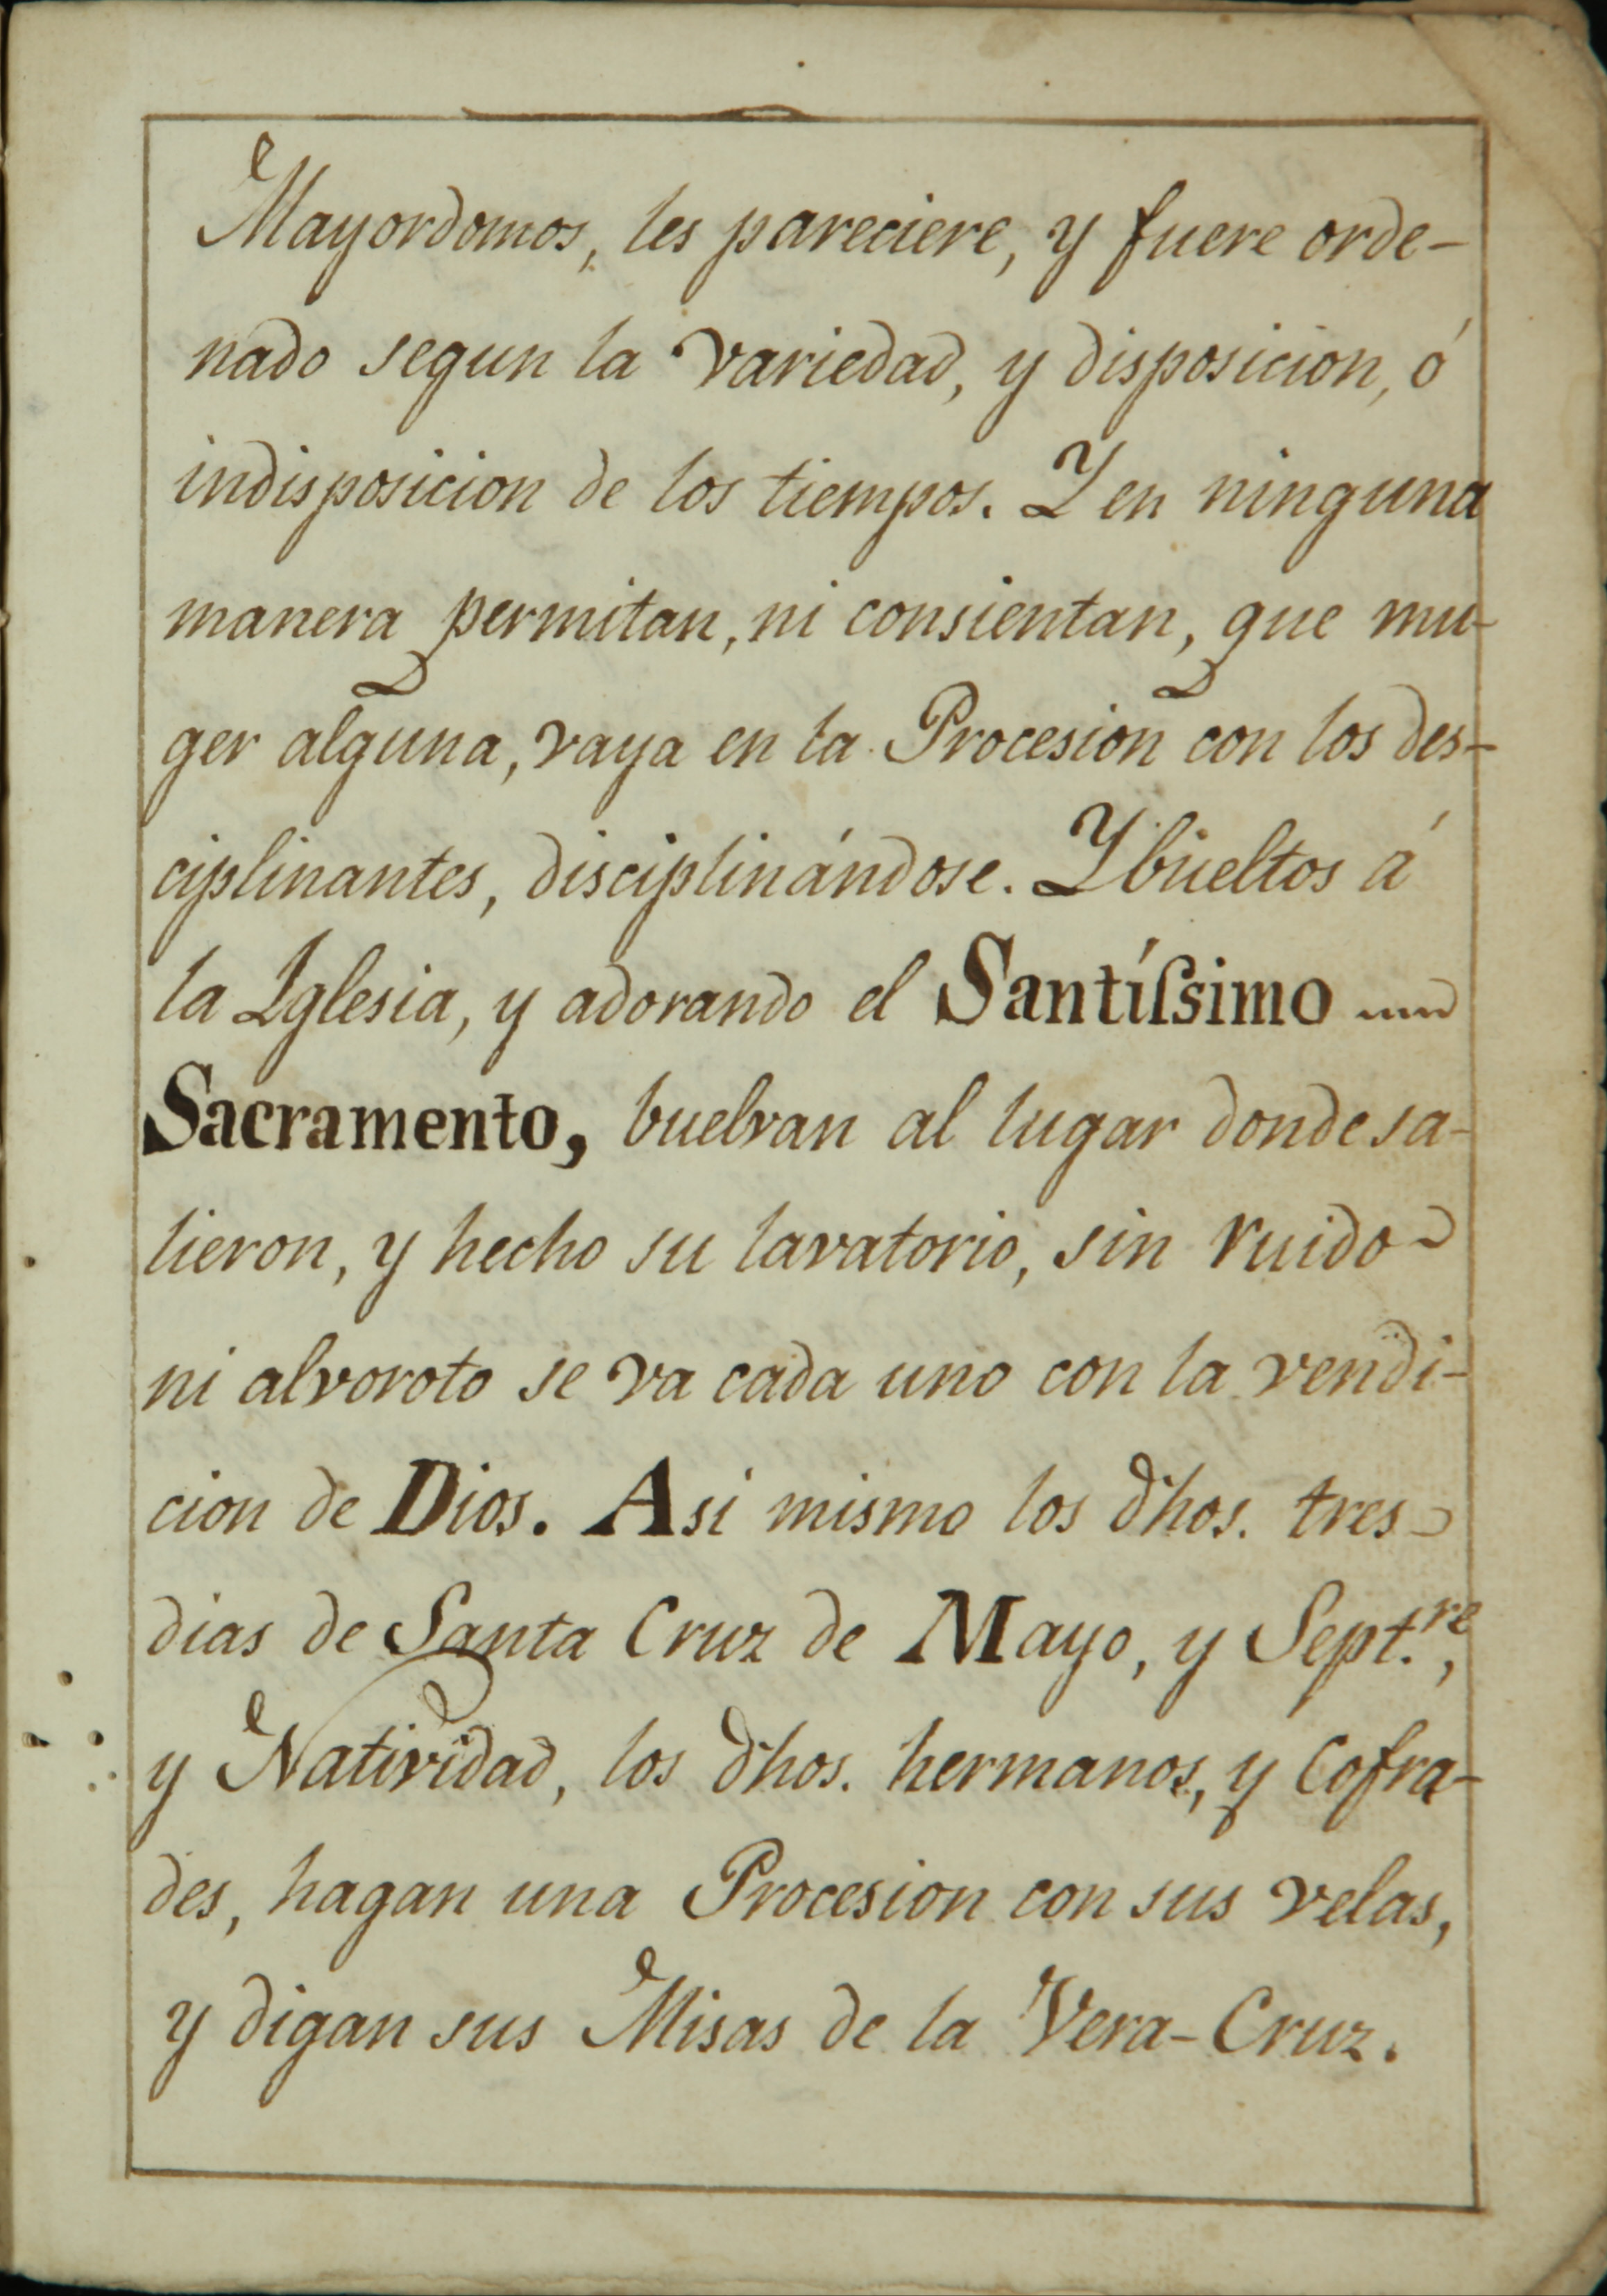 Mayordomos, les pareciere, y fuere orde-
nado segun la variedad, y disposicion, ó
indisposicion de los tiempos. Y en ninguna
manera permitan, ni consientan, que mu-
ger alguna, vaya en la Procesion con los des-
ciplinantes, disciplinándose. Y bueltos á
la Iglesia, y adorando el Santíſsimo
Sacramento, buelvan al lugar donde sa-
lieron, y hecho su lavatorio, sin ruido
ni alvoroto se va cada uno con la vendi-
cion de Dios. Asi mismo los dhos. tres
dias de Santa Cruz de Mayo, y Sept.re,
y Natividad, los dhos. hermanos, y Cofra-
des, hagan una Procesion con sus velas,
y digan sus Misas de la Vera-Cruz.